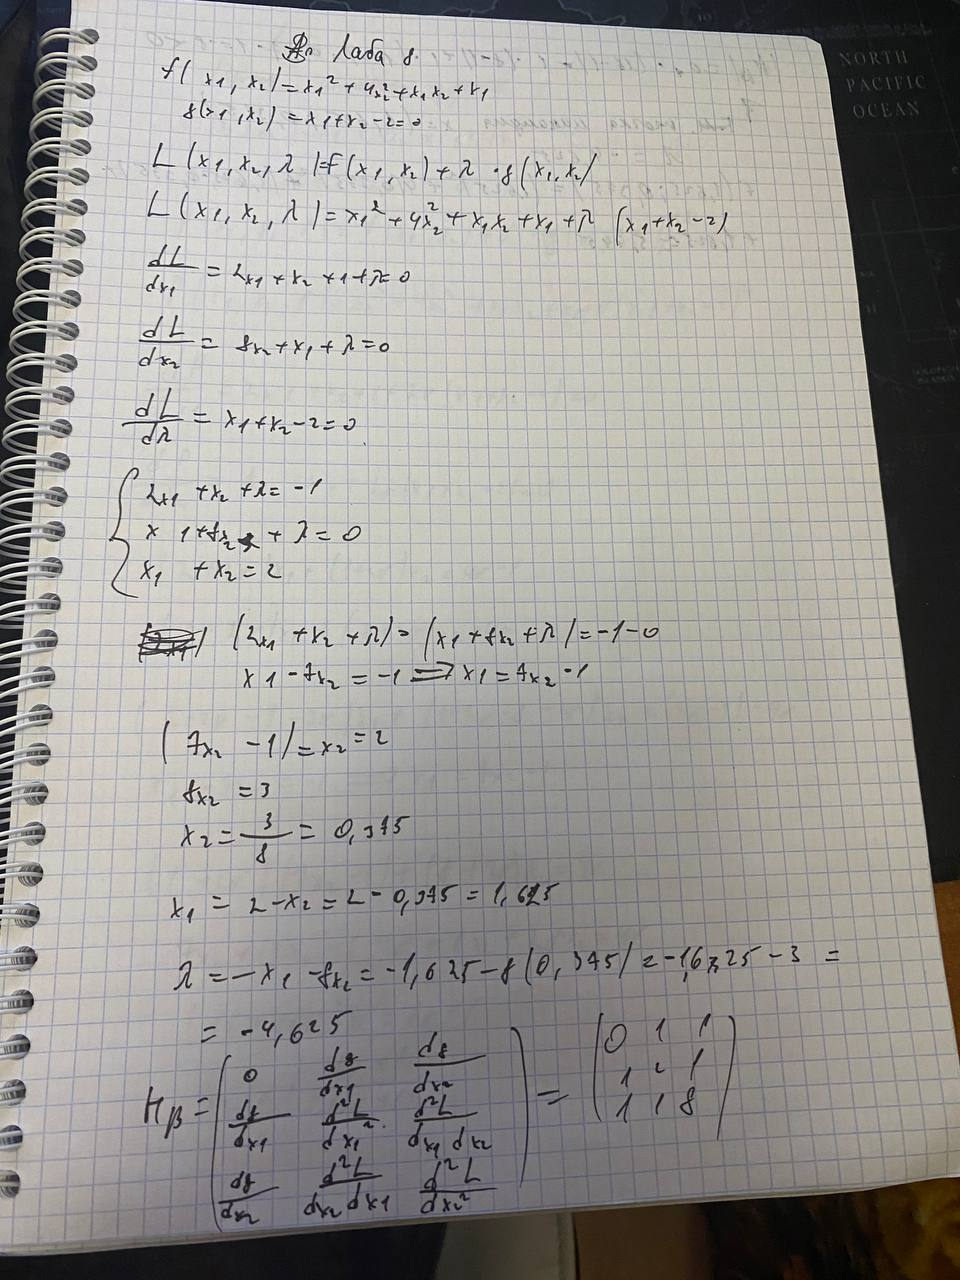 Лаба 8.
f(x1, x2) = x1² + 4x2² + x1 x2 + x1
g(x1, x2) = x1 + x2 - 2 = 0
L(x1, x2, λ) = f(x1, x2) + λ · g(x1, x2)
L(x1, x2, λ) = x1² + 4x2² + x1x2 + x1 + λ (x1 + x2 - 2)
dL/dx1 = 2x1 + x2 + 1 + λ = 0
dL/dx2 = 8x2 + x1 + λ = 0
dL/dλ = x1 + x2 - 2 = 0
{ 2x1 + x2 + λ = -1
x1 + 8x2 + λ = 0
x1 + x2 = 2
(2x1 + x2 + λ) - (x1 + 8x2 + λ) = -1 - 0
x1 - 7x2 = -1 => x1 = 7x2 - 1
(7x2 - 1) = x2 = 2
8x2 = 3
x2 = 3/8 = 0,375
x1 = 2 - x2 = 2 - 0,375 = 1,625
λ = -x1 - 8x2 = -1,625 - 8(0,375) = -1,625 - 3 =
= -4,625
Hβ = ( 0 dg/dx1 dg/dx2 ) = ( 0 1 1 )
( dg/dx1 d²L/dx1² d²L/dx1 dx2 ) ( 1 2 1 )
( dg/dx2 d²L/dx2 dx1 d²L/dx2² ) ( 1 1 8 )
NORTH
PACIFIC
OCEAN